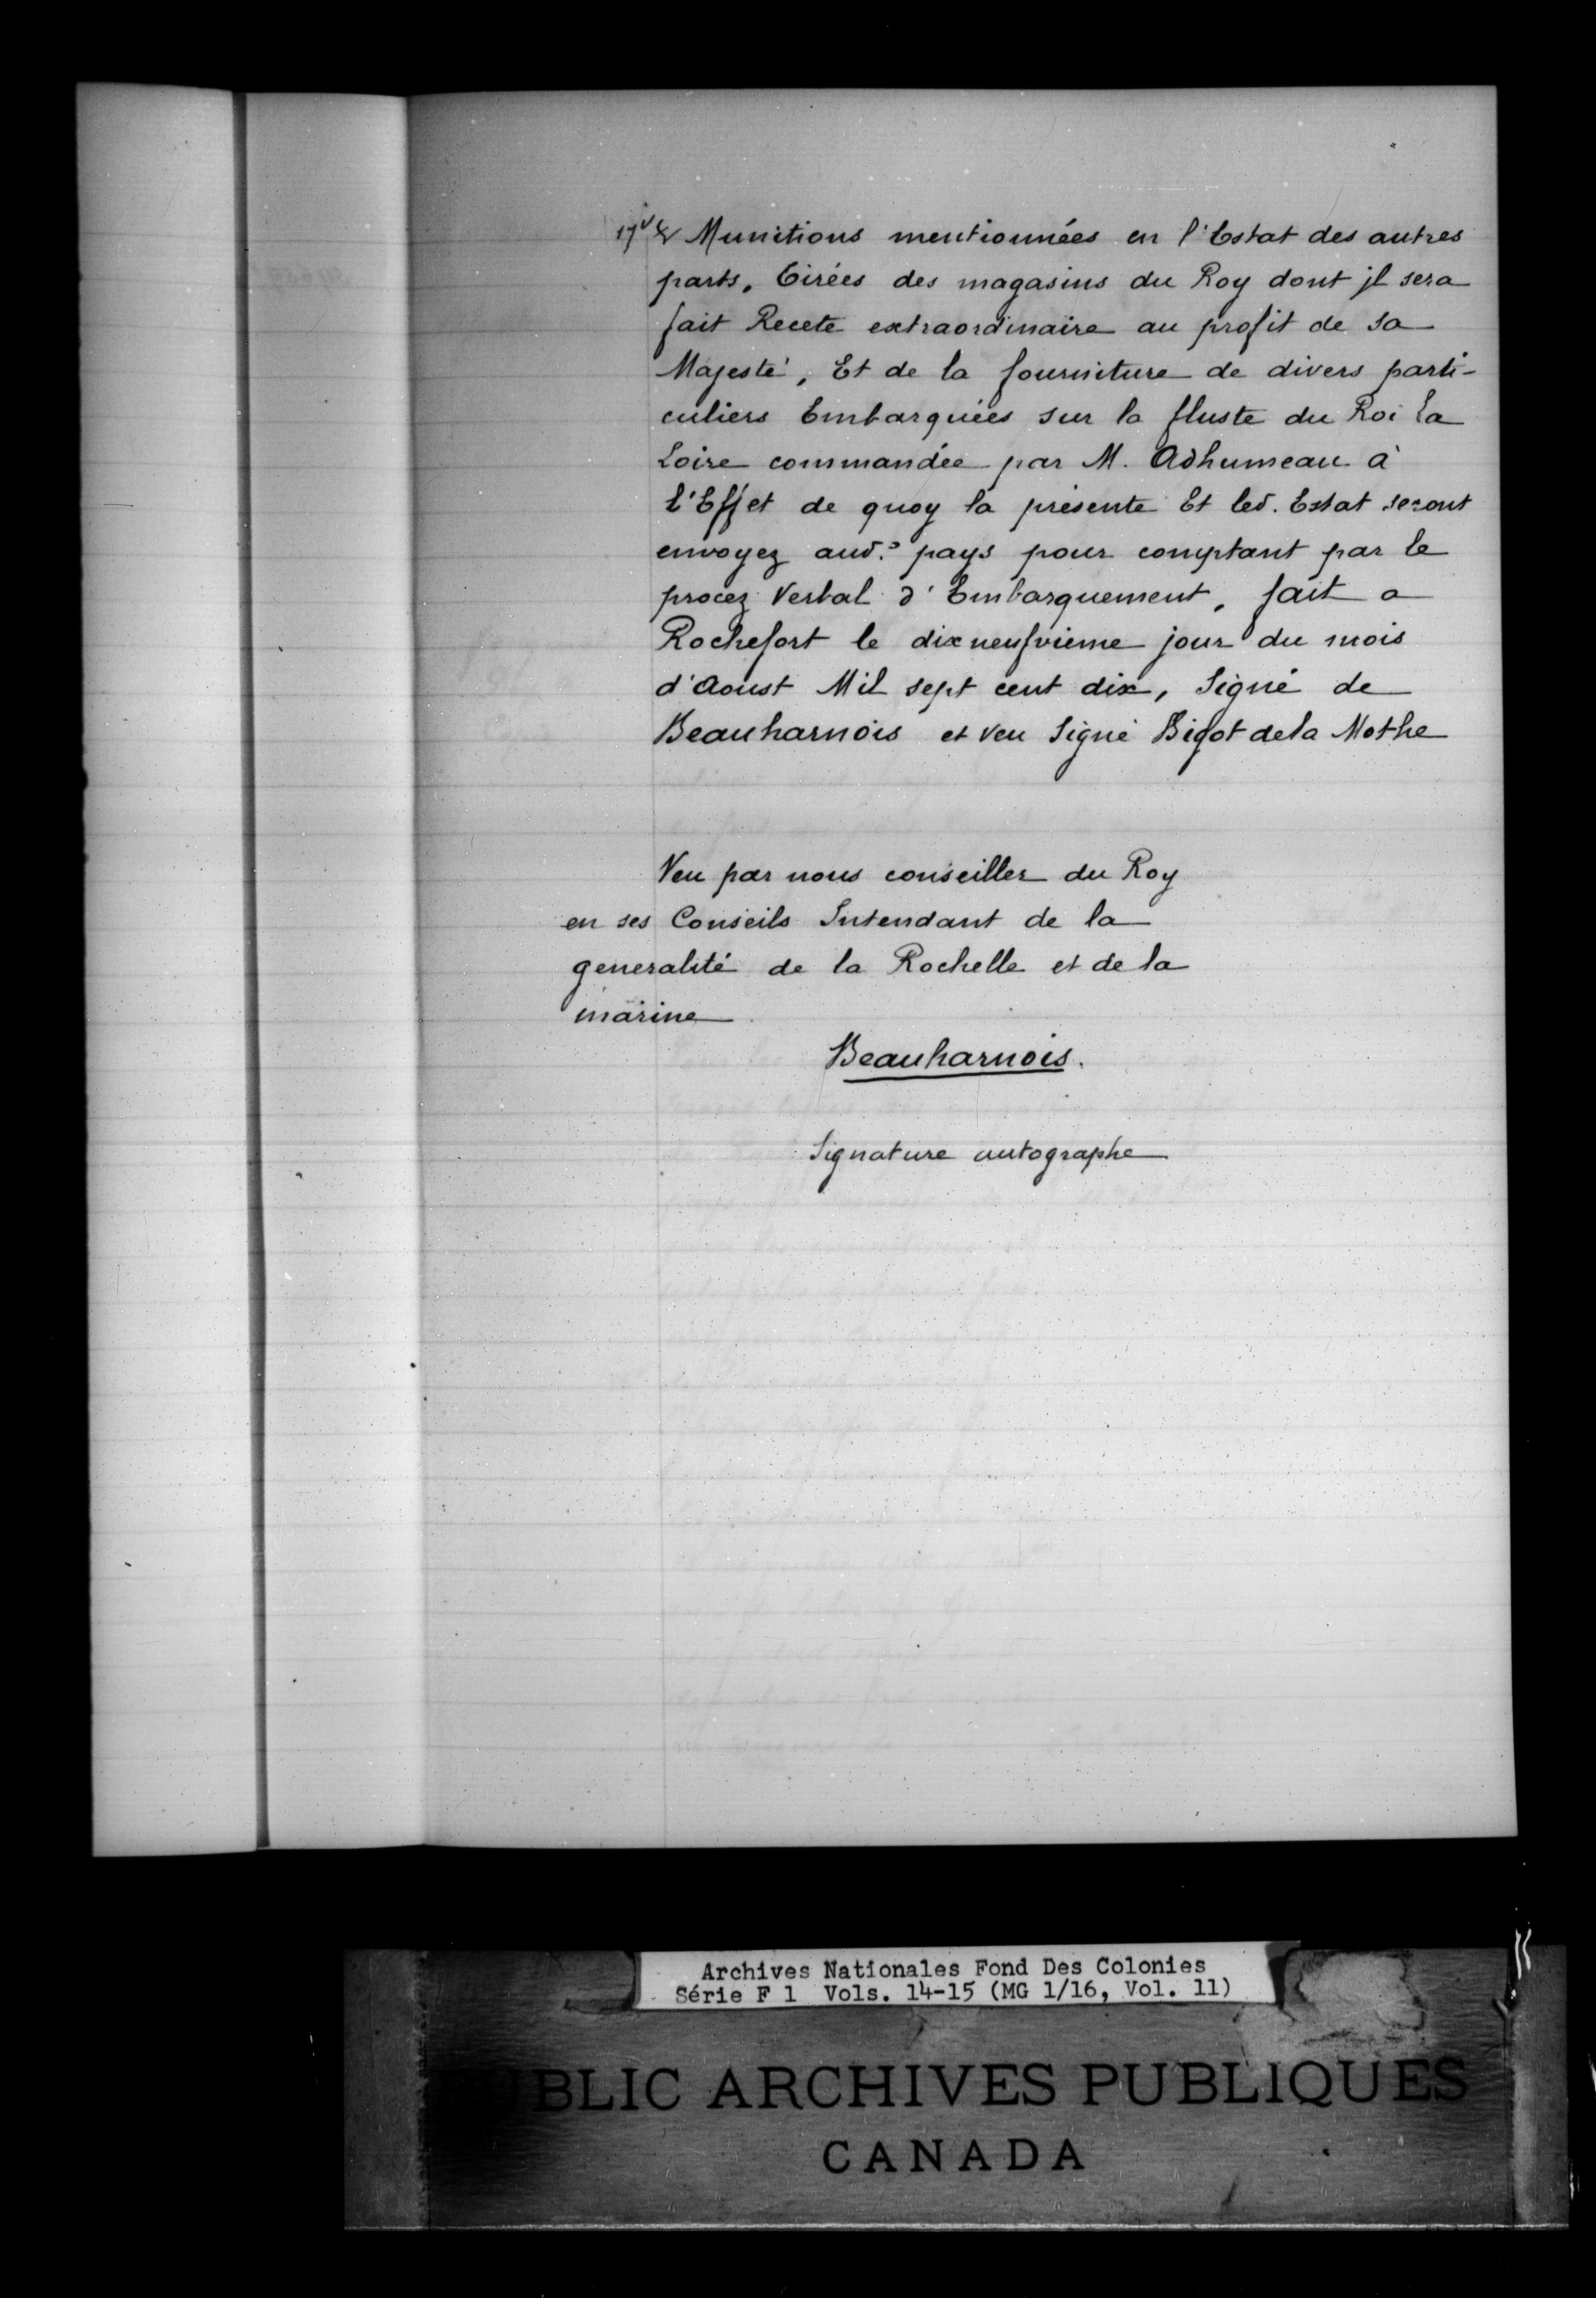 17v & Munitions mentionnées en l'Estat des autres
parts, Tirées des magasins du Roy dont jl sera
fait Recete extraordinaire au profit de sa
Majesté, Et de la fourniture de divers parti-
culiers Embarquées sur la fluste du Roi la
Loire commandée par M. Adhumeau à
l'Effet de quoy la présente Et led. Estat seront
envoyez aud.² pays pour comptant par le
procez Verbal d'Embarquement, fait a
Rochefort le dixneufvieme jour du mois
d'Aoust Mil sept cent dix, Signé de
Beauharnois et veu Signé Bigot dela Mothe
Veu par nous conseiller du Roy
en ses Conseils Intendant de la
generalité de la Rochelle et de la
marine
Beauharnois.
Signature autographe
Archives Nationales Fond Des Colonies
Série F 1 Vols. 14-15 (MG 1/16, Vol. 11)
PUBLIC ARCHIVES PUBLIQUES
CANADA